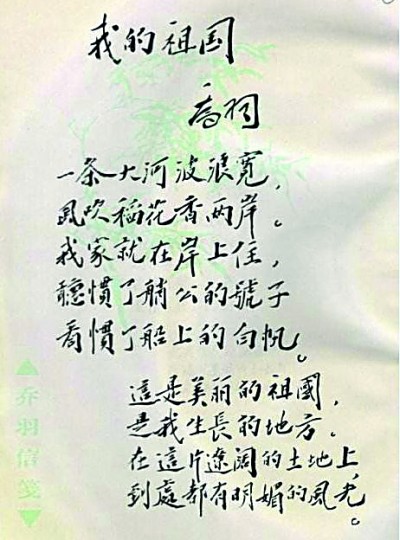 我的祖国
乔羽
一条大河波浪宽，
風吹稻花香两岸。
我家就在岸上住，
聽慣了艄公的號子
看慣了船上的白帆。
這是美丽的祖國，
是我生長的地方，
在這片遼阔的土地上，
到處都有明媚的風光。
乔羽信笺